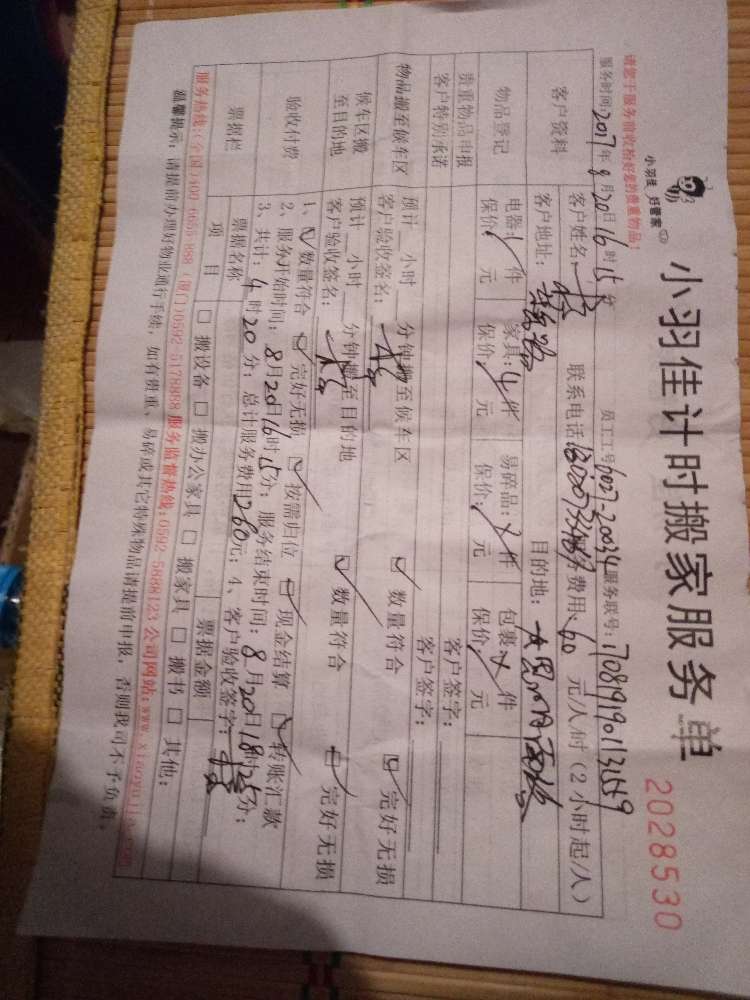 小羽佳计时搬家服务单
小羽佳 好管家
2028530
请您于服务前收拾好您的贵重物品!
服务时间:2017年8月20日16时15分 员工工号6027-20034服务联号:
客户资料
客户姓名: 联系电话 服务费用:60元/人/时(2小时起/人)
客户地址: 目的地:
物品登记
电器: 件 家具:4件 易碎品: 件 包裹: 件
保价: 元 保价: 元 保价: 元 保价: 元
贵重物品申报 客户签字:
客户特别承诺 客户签字:
物品搬至候车区
预计 小时 分钟搬至候车区 ☑数量符合 ☑完好无损
客户验收签名:
候车区搬至目的地
预计 小时 分钟搬至目的地 ☑数量符合 ☑完好无损
客户验收签名:
验收付费
1、☑数量符合 ☑完好无损 ☑按需归位 ☑现金结算 ☑转账汇款
2、服务开始时间:8月20日16时15分;服务结束时间:8月20日18时25分;
3、共计:4时20分;总计服务费用260元;4、客户验收签字:
票据栏
票据名称 票据金额
项目 □搬设备 □搬办公家具 □搬家具 □搬书 □其他:
服务热线:(全国)400-6655-888 (厦门)0592-5178888 服务监督热线:0592-5888123 公司网站:www.xiaoyujia.com
温馨提示:请提前办理好物业通行手续,如有贵重、易碎或其它特殊物品请提前申报,否则我司不予负责。